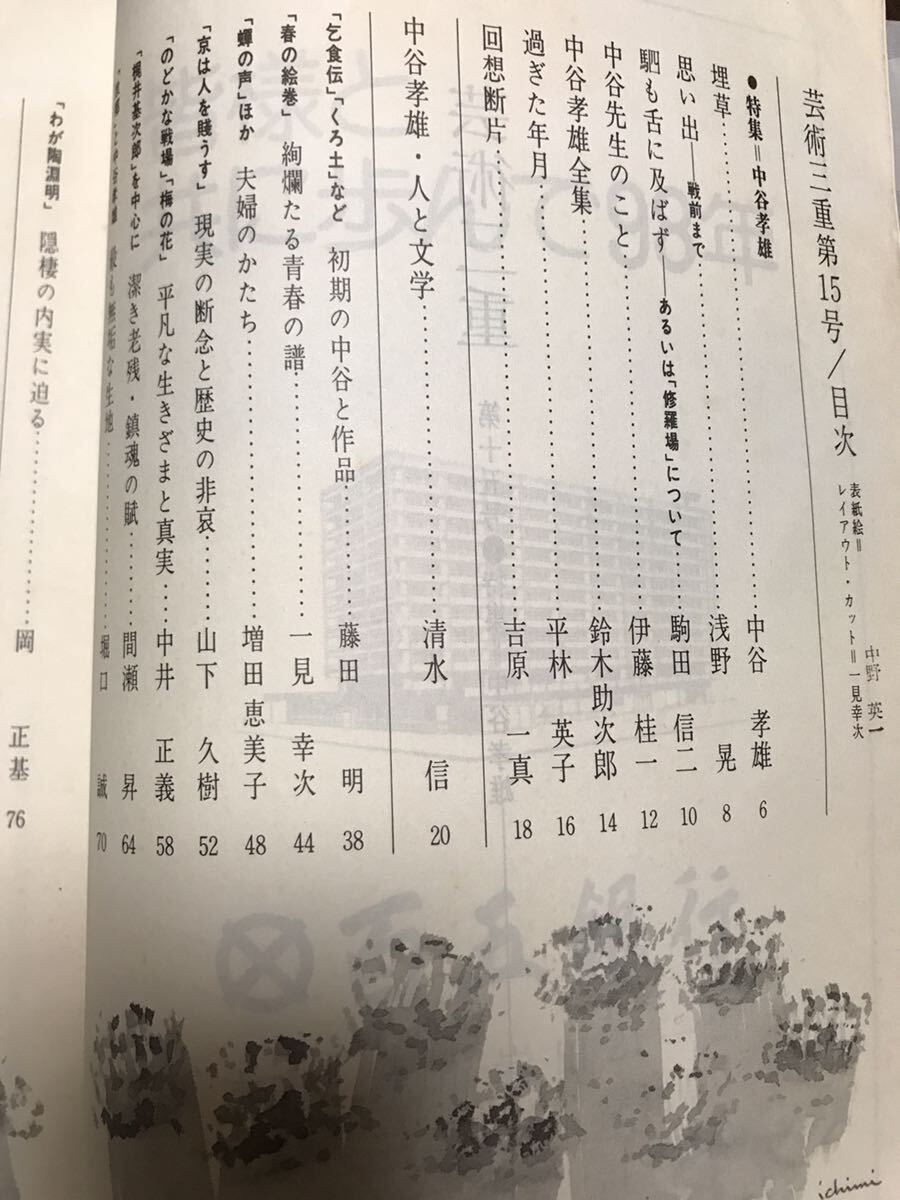 芸術三重第15号/目次
表紙絵＝中野英一
レイアウト・カット＝一見幸次
●特集＝中谷孝雄
埋草……中谷 孝雄 6
思い出——戦前まで……浅野 晃 8
駟も舌に及ばず——あるいは「修羅場」について……駒田 信二 10
中谷先生のこと……伊藤 桂一 12
中谷孝雄全集……鈴木助次郎 14
過ぎた年月……平林 英子 16
回想断片……吉原 一真 18
中谷孝雄・人と文学……清水 信 20
「乞食伝」「くろ土」など 初期の中谷と作品……藤田 明 38
「春の絵巻」 絢爛たる青春の譜……一見 幸次 44
「蟬の声」ほか 夫婦のかたち……増田 恵美子 48
「京は人を賤うす」 現実の断念と歴史の非哀……山下 久樹 52
「のどかな戦場」「梅の花」 平凡な生きざまと真実……中井 正義 58
「梶井基次郎」を中心に 潔き老残・鎮魂の賦……間瀬 昇 64
と中谷孝雄 も無垢な生地……堀口 誠 70
「わが陶淵明」 隠棲の内実に迫る……岡 正基 76
ichimi